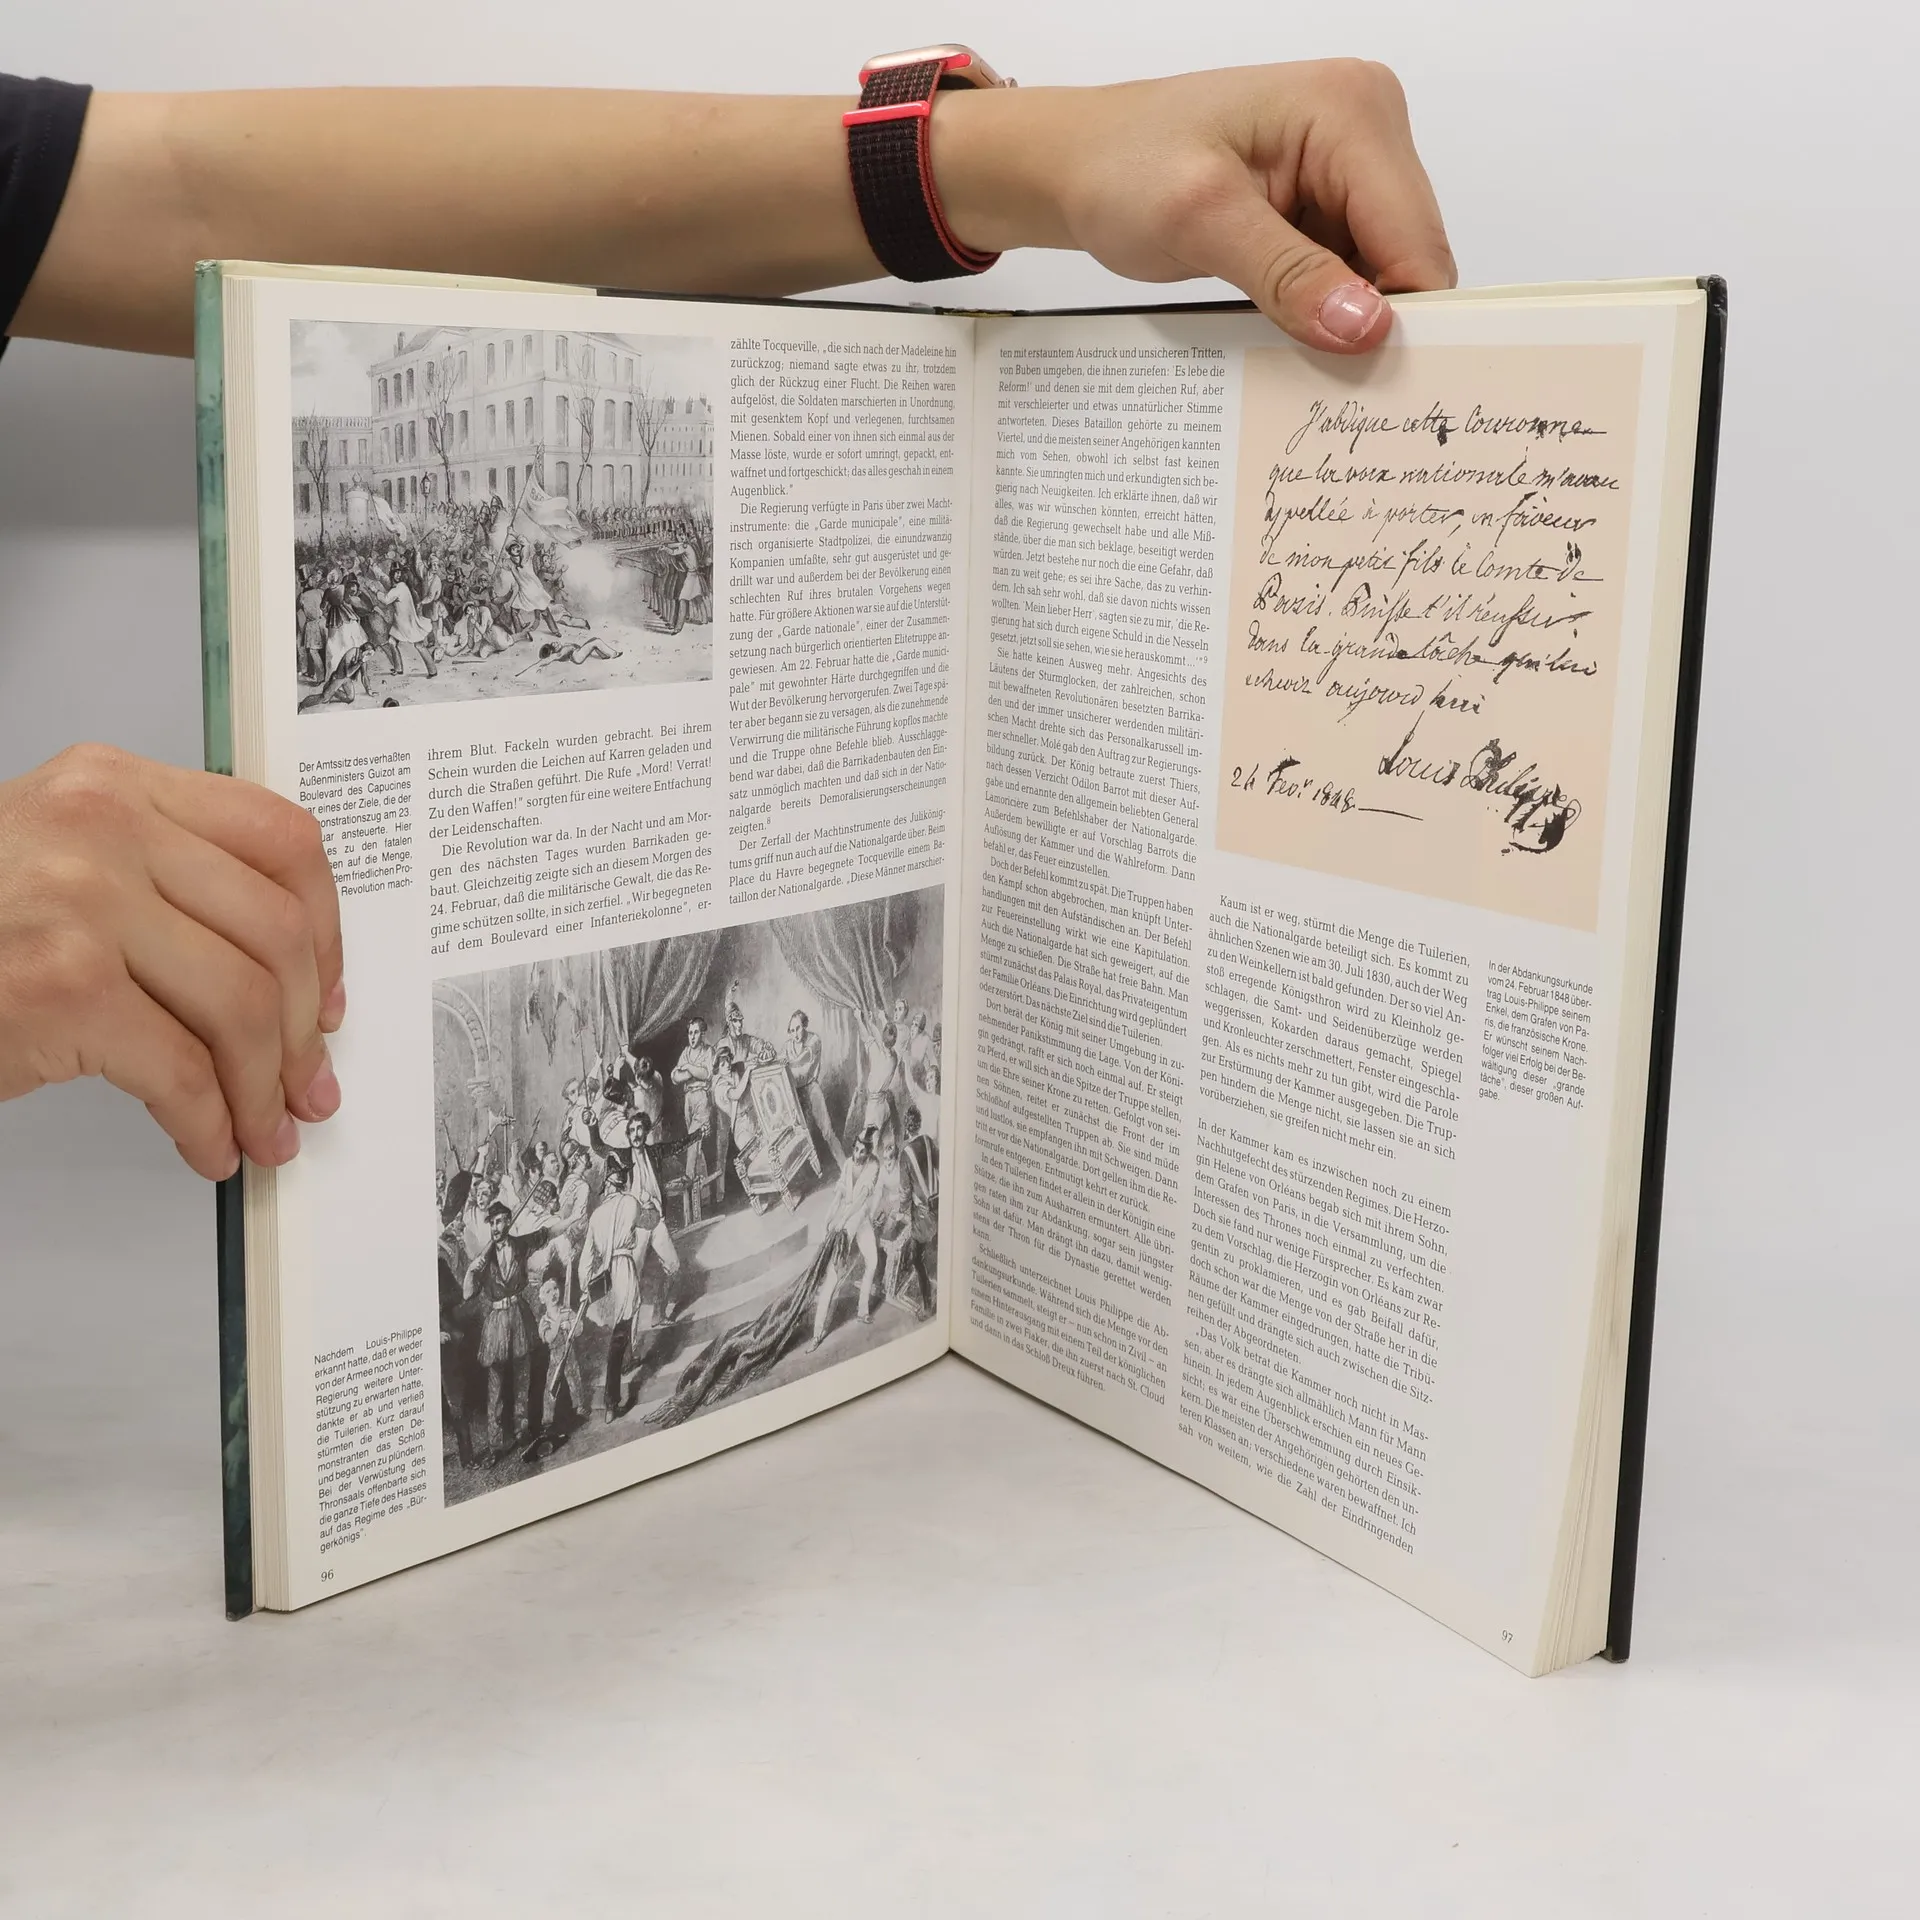 Der Amtssitz des verhaßten
Außenministers Guizot am
Boulevard des Capucines
ar eines der Ziele, die der
onstrationszug am 23.
uar ansteuerte. Hier
es zu den fatalen
sen auf die Menge,
dem friedlichen Pro-
Revolution mach-
ihrem Blut. Fackeln wurden gebracht. Bei ihrem
Schein wurden die Leichen auf Karren geladen und
durch die Straßen geführt. Die Rufe „Mord! Verrat!
Zu den Waffen!" sorgten für eine weitere Entfachung
der Leidenschaften.
Die Revolution war da. In der Nacht und am Mor-
gen des nächsten Tages wurden Barrikaden ge-
baut. Gleichzeitig zeigte sich an diesem Morgen des
24. Februar, daß die militärische Gewalt, die das Re-
gime schützen sollte, in sich zerfiel. „Wir begegneten
auf dem Boulevard einer Infanteriekolonne", er-
zählte Tocqueville, „die sich nach der Madeleine hin
zurückzog; niemand sagte etwas zu ihr, trotzdem
glich der Rückzug einer Flucht. Die Reihen waren
aufgelöst, die Soldaten marschierten in Unordnung,
mit gesenktem Kopf und verlegenen, furchtsamen
Mienen. Sobald einer von ihnen sich einmal aus der
Masse löste, wurde er sofort umringt, gepackt, ent-
waffnet und fortgeschickt; das alles geschah in einem
Augenblick."
Die Regierung verfügte in Paris über zwei Macht-
instrumente: die „Garde municipale", eine militä-
risch organisierte Stadtpolizei, die einundzwanzig
Kompanien umfaßte, sehr gut ausgerüstet und ge-
drillt war und außerdem bei der Bevölkerung einen
schlechten Ruf ihres brutalen Vorgehens wegen
hatte. Für größere Aktionen war sie auf die Unterstüt-
zung der „Garde nationale", einer der Zusammen-
setzung nach bürgerlich orientierten Elitetruppe an-
gewiesen. Am 22. Februar hatte die „Garde munici-
pale" mit gewohnter Härte durchgegriffen und die
Wut der Bevölkerung hervorgerufen. Zwei Tage spä-
ter aber begann sie zu versagen, als die zunehmende
Verwirrung die militärische Führung kopflos machte
und die Truppe ohne Befehle blieb. Ausschlagge-
bend war dabei, daß die Barrikadenbauten den Ein-
satz unmöglich machten und daß sich in der Natio-
nalgarde bereits Demoralisierungserscheinungen
zeigten.8
Der Zerfall der Machtinstrumente des Julikönig-
tums griff nun auch auf die Nationalgarde über. Beim
Place du Havre begegnete Tocqueville einem Ba-
taillon der Nationalgarde. „Diese Männer marschier-
Nachdem Louis-Philippe
erkannt hatte, daß er weder
von der Armee noch von der
Regierung weitere Unter-
stützung zu erwarten hatte,
dankte er ab und verließ
die Tuilerien. Kurz darauf
stürmten die ersten De-
monstranten das Schloß
und begannen zu plündern.
Bei der Verwüstung des
Thronsaals offenbarte sich
die ganze Tiefe des Hasses
auf das Regime des „Bür-
gerkönigs".
96
ten mit erstauntem Ausdruck und unsicheren Tritten,
von Buben umgeben, die ihnen zuriefen: 'Es lebe die
Reform!' und denen sie mit dem gleichen Ruf, aber
mit verschleierter und etwas unnatürlicher Stimme
antworteten. Dieses Bataillon gehörte zu meinem
Viertel, und die meisten seiner Angehörigen kannten
mich vom Sehen, obwohl ich selbst fast keinen
kannte. Sie umringten mich und erkundigten sich be-
gierig nach Neuigkeiten. Ich erklärte ihnen, daß wir
alles, was wir wünschen könnten, erreicht hätten,
daß die Regierung gewechselt habe und alle Miß-
stände, über die man sich beklage, beseitigt werden
würden. Jetzt bestehe nur noch die eine Gefahr, daß
man zu weit gehe; es sei ihre Sache, das zu verhin-
dern. Ich sah sehr wohl, daß sie davon nichts wissen
wollten. 'Mein lieber Herr', sagten sie zu mir, 'die Re-
gierung hat sich durch eigene Schuld in die Nesseln
gesetzt, jetzt soll sie sehen, wie sie herauskommt ...'"9
Sie hatte keinen Ausweg mehr. Angesichts des
Läutens der Sturmglocken, der zahlreichen, schon
mit bewaffneten Revolutionären besetzten Barrika-
den und der immer unsicherer werdenden militäri-
schen Macht drehte sich das Personalkarussell im-
mer schneller. Molé gab den Auftrag zur Regierungs-
bildung zurück. Der König betraute zuerst Thiers,
nach dessen Verzicht Odilon Barrot mit dieser Auf-
gabe und ernannte den allgemein beliebten General
Lamoricière zum Befehlshaber der Nationalgarde.
Außerdem bewilligte er auf Vorschlag Barrots die
Auflösung der Kammer und die Wahlreform. Dann
befahl er, das Feuer einzustellen.
Doch der Befehl kommt zu spät. Die Truppen haben
den Kampf schon abgebrochen, man knüpft Unter-
handlungen mit den Aufständischen an. Der Befehl
zur Feuereinstellung wirkt wie eine Kapitulation.
Auch die Nationalgarde hat sich geweigert, auf die
Menge zu schießen. Die Straße hat freie Bahn. Man
stürmt zunächst das Palais Royal, das Privateigentum
der Familie Orléans. Die Einrichtung wird geplündert
oder zerstört. Das nächste Ziel sind die Tuilerien.
Dort berät der König mit seiner Umgebung in zu-
nehmender Panikstimmung die Lage. Von der Köni-
gin gedrängt, rafft er sich noch einmal auf. Er steigt
zu Pferd, er will sich an die Spitze der Truppe stellen,
um die Ehre seiner Krone zu retten. Gefolgt von sei-
nen Söhnen, reitet er zunächst die Front der im
Schloßhof aufgestellten Truppen ab. Sie sind müde
und lustlos, sie empfangen ihn mit Schweigen. Dann
tritt er vor die Nationalgarde. Dort gellen ihm die Re-
formrufe entgegen. Entmutigt kehrt er zurück.
In den Tuilerien findet er allein in der Königin eine
Stütze, die ihn zum Ausharren ermuntert. Alle übri-
gen raten ihm zur Abdankung, sogar sein jüngster
Sohn ist dafür. Man drängt ihn dazu, damit wenig-
stens der Thron für die Dynastie gerettet werden
kann.
Schließlich unterzeichnet Louis Philippe die Ab-
dankungsurkunde. Während sich die Menge vor den
Tuilerien sammelt, steigt er – nun schon in Zivil – an
einem Hinterausgang mit einem Teil der königlichen
Familie in zwei Fiaker, die ihn zuerst nach St. Cloud
und dann in das Schloß Dreux führen.
J'abdique cette Couronne
que la voix nationale m'avait
appellée à porter, en faveur
de mon petit fils le Comte de
Paris. Puisse t'il réussir
dans la grande tâche qui lui
echoit aujourd'hui
Louis Philippe
24 Fevr 1848
Kaum ist er weg, stürmt die Menge die Tuilerien,
auch die Nationalgarde beteiligt sich. Es kommt zu
ähnlichen Szenen wie am 30. Juli 1830, auch der Weg
zu den Weinkellern ist bald gefunden. Der so viel An-
stoß erregende Königsthron wird zu Kleinholz ge-
schlagen, die Samt- und Seidenüberzüge werden
weggerissen, Kokarden daraus gemacht. Spiegel
und Kronleuchter zerschmettert, Fenster eingeschla-
gen. Als es nichts mehr zu tun gibt, wird die Parole
zur Erstürmung der Kammer ausgegeben. Die Trup-
pen hindern die Menge nicht, sie lassen sie an sich
vorüberziehen, sie greifen nicht mehr ein.
In der Kammer kam es inzwischen noch zu einem
Nachhutgefecht des stürzenden Regimes. Die Herzo-
gin Helene von Orléans begab sich mit ihrem Sohn,
dem Grafen von Paris, in die Versammlung, um die
Interessen des Thrones noch einmal zu verfechten.
Doch sie fand nur wenige Fürsprecher. Es kam zwar
zu dem Vorschlag, die Herzogin von Orléans zur Re-
gentin zu proklamieren, und es gab Beifall dafür,
doch schon war die Menge von der Straße her in die
Räume der Kammer eingedrungen, hatte die Tribü-
nen gefüllt und drängte sich auch zwischen die Sitz-
reihen der Abgeordneten.
„Das Volk betrat die Kammer noch nicht in Mas-
sen, aber es drängte sich allmählich Mann für Mann
hinein. In jedem Augenblick erschien ein neues Ge-
sicht; es war eine Überschwemmung durch Einsik-
kern. Die meisten der Angehörigen gehörten den un-
teren Klassen an; verschiedene waren bewaffnet. Ich
sah von weitem, wie die Zahl der Eindringenden
In der Abdankungsurkunde
vom 24. Februar 1848 über-
trag Louis-Philippe seinem
Enkel, dem Grafen von Pa-
ris, die französische Krone.
Er wünscht seinem Nach-
folger viel Erfolg bei der Be-
wältigung dieser „grande
tâche" dieser großen Auf-
gabe.
97